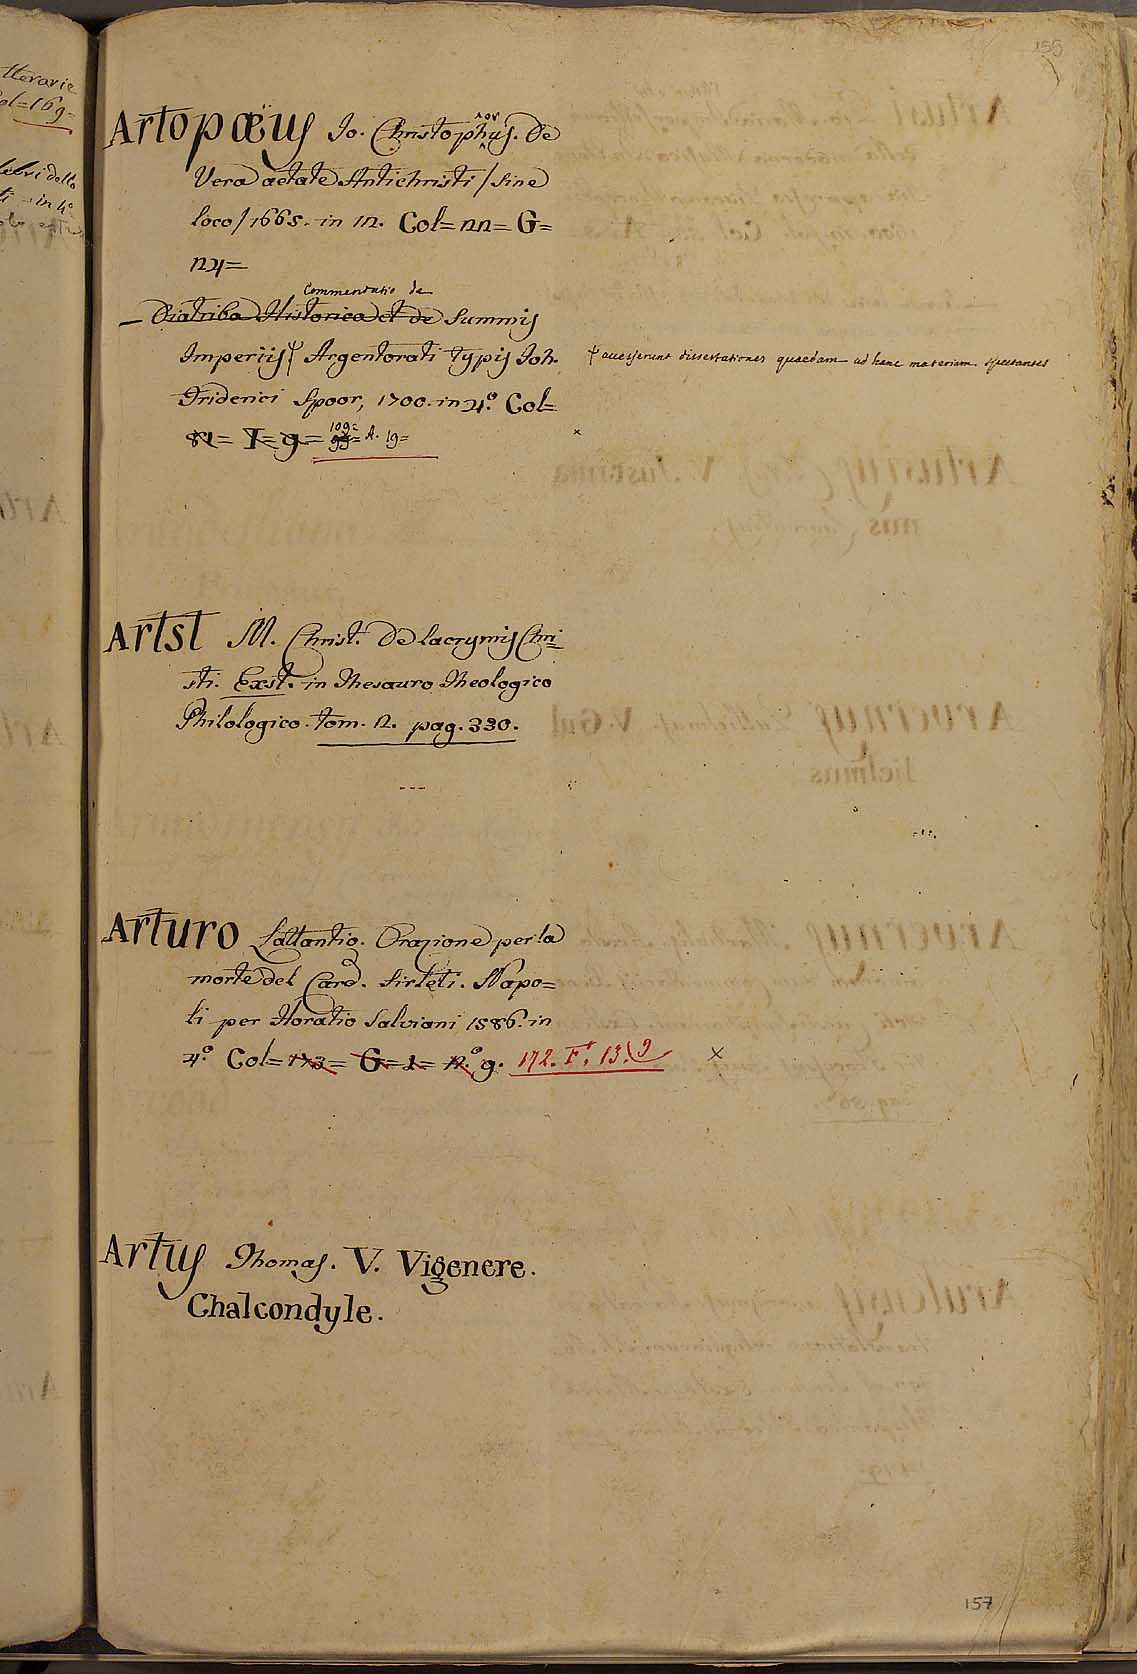 155
tterarie
ol=169=
Artopœüs Jo. Christophus. De
Vera aetate Antichristi / sine
loco / 1665. in 12. Col= nn= G=
n4=
Commentatio de
— Diatriba Historica et de Summis
Imperiis † Argentorati typis Joh.
† accesserunt dissertationes quaedam ad hanc materiam spectantes
Friderici Spoor, 1700. in 4.° Col=
109=
81= I= g= 99= A. 19=
Artst M. Christ. De lacrymis Chri=
sti. Exst. in Thesauro Theologico
Philologico. tom. 2. pag. 330.
Arturo Lattantio. Orazione per la
morte del Card. Sirleti. Napo=
li per Horatio Salviani 1586. in
4.° Col= 173= G= 1= 12.° g. 172. F. 13.(9 ×
Artus Thomas. V. Vigenere.
Chalcondyle.
157